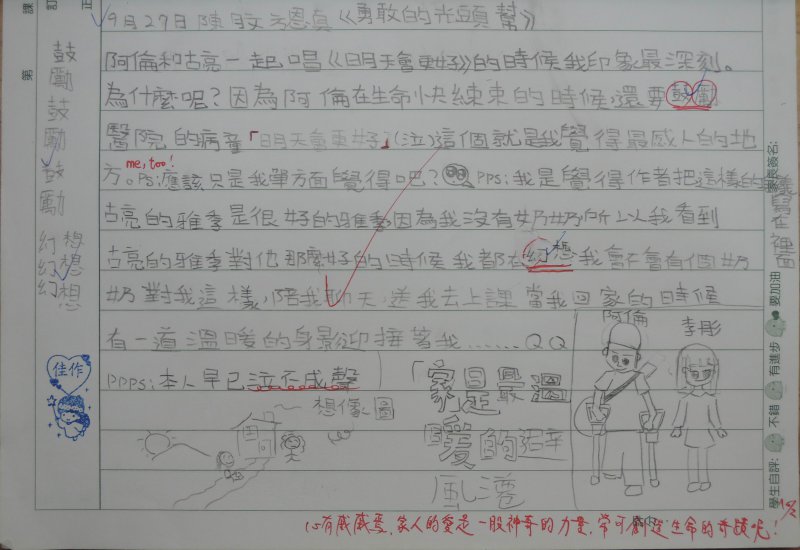 9月27日陳玟恩真《勇敢的光頭幫》
阿倫和古亮一起唱《明天會更好》的時候我印象最深刻。
為什麼呢?因為阿倫在生命快結束的時候還要鼓勵
醫院的病童「明天會更好」(泣)這個就是我覺得最感人的地
方。PS:應該只是我單方面覺得吧? PPS:我是覺得作者把這樣的
me, too!
古亮的雅季是很好的雅季因為我沒有奶奶所以我看到
古亮的雅季對他那麼好的時候我都在幻想我會不會有個奶
奶對我這樣,陪我聊天,送我去上課當我回家的時候
有一道溫暖的身影迎接著我......QQ
PPPS:本人早已泣不成聲
想像圖
「家是最溫
暖的避
風港
阿倫
李彤
鼓勵鼓勵鼓勵
幻想
幻想
幻想
佳作
寫在裡面
學生自評:
不錯
有進步
要加油
家長簽名:
課
第
訂
正
心有戚戚焉,家人的愛是一股神奇的力量,常可創造生命的奇蹟呢!